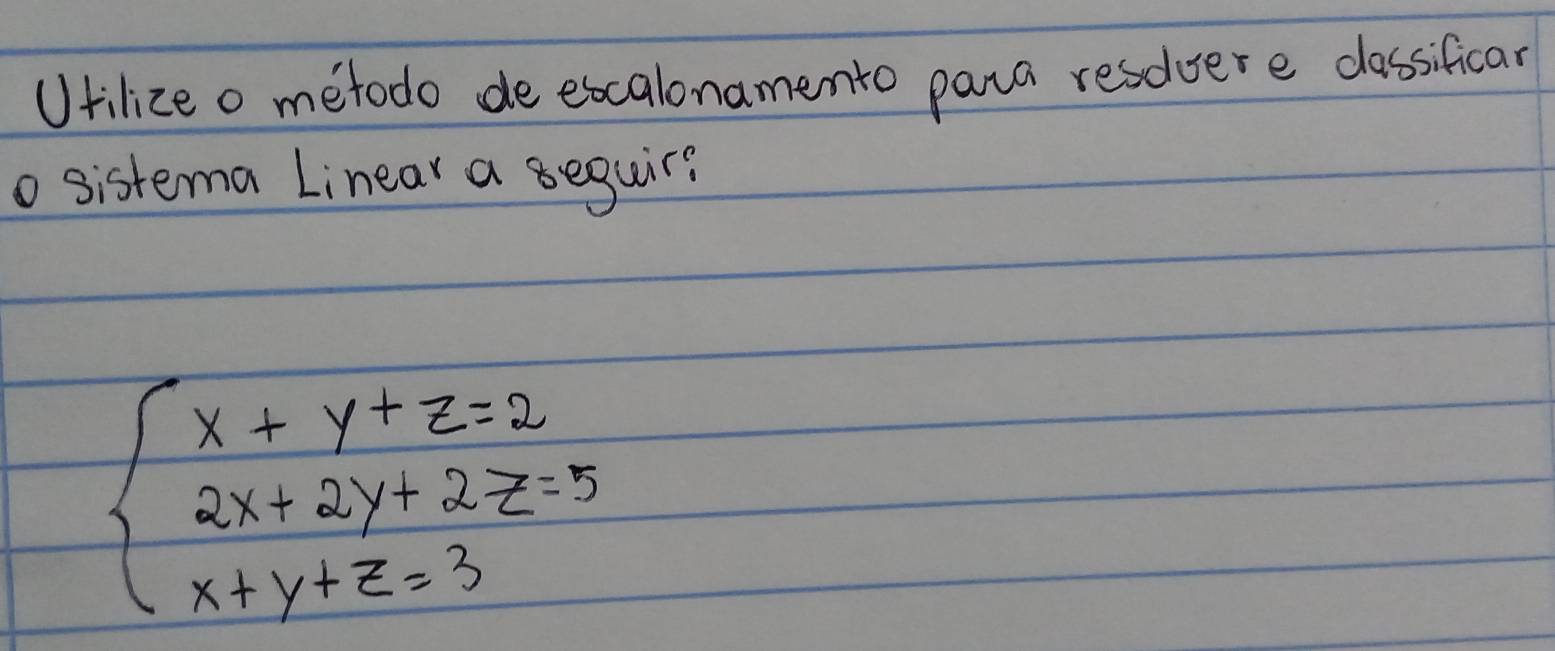 Utilize o método de escalonamento para resolver e classificar
o sistema Linear a seguir:
x + y + z = 2
2x + 2y + 2z = 5
x + y + z = 3